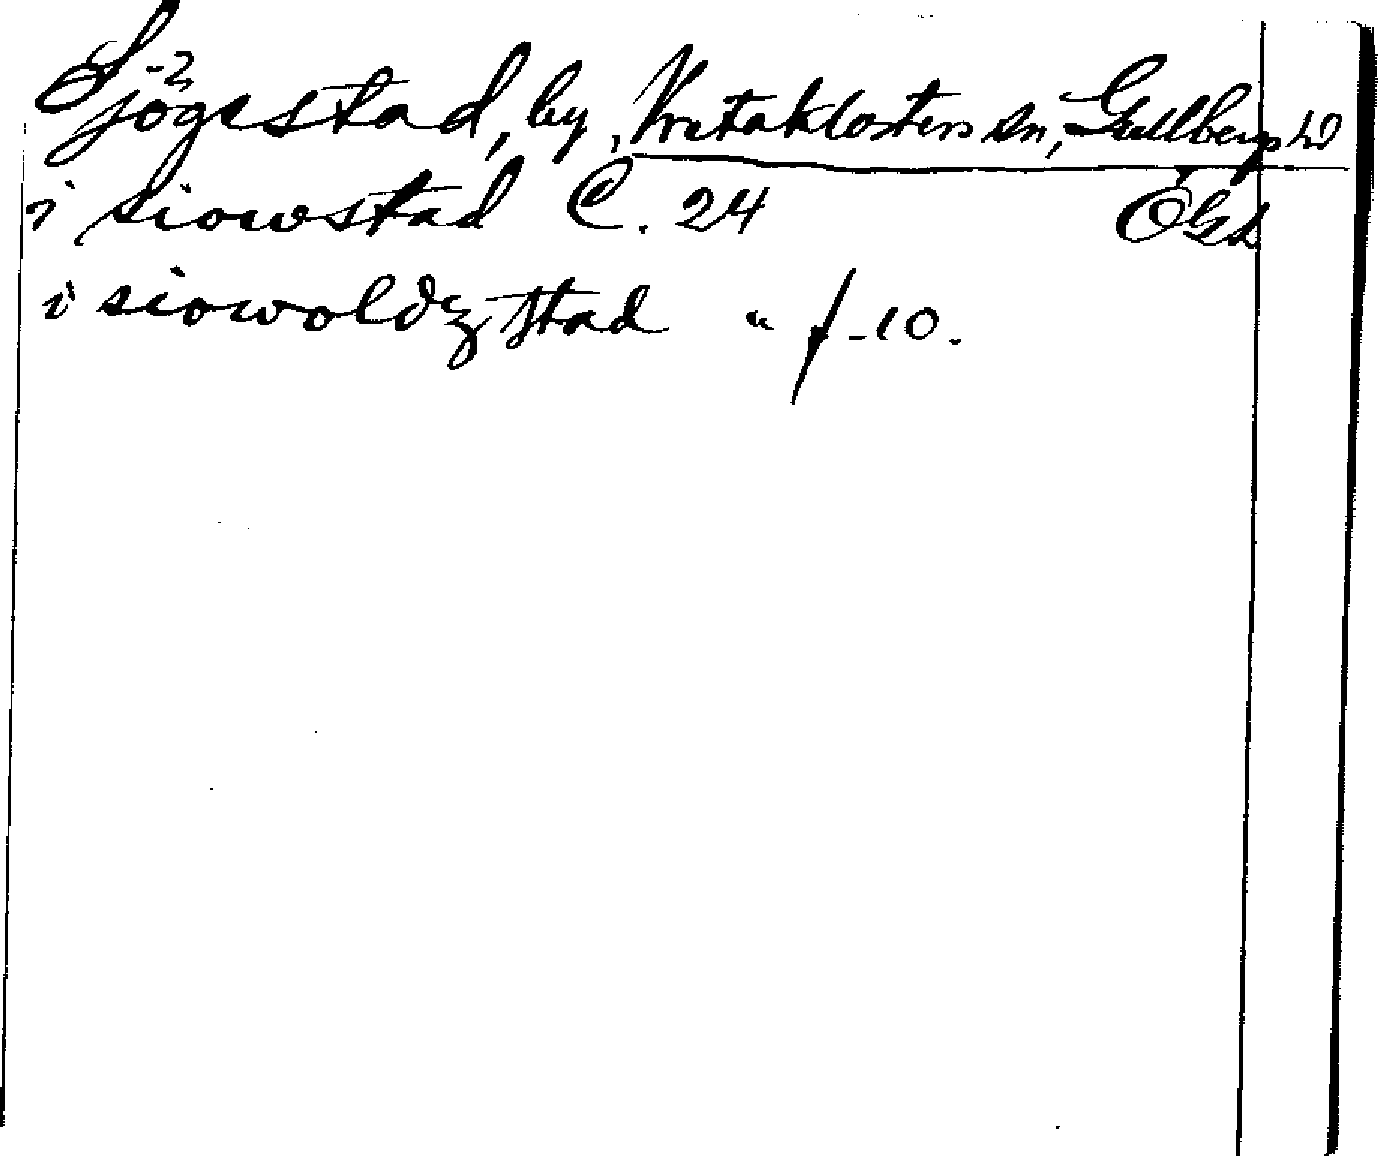 Sjögestad, by, Vretaklosters sn, Gullbergs hd
i siowstad C. 24 ÖGL
i siowoldzstad " f. 10.